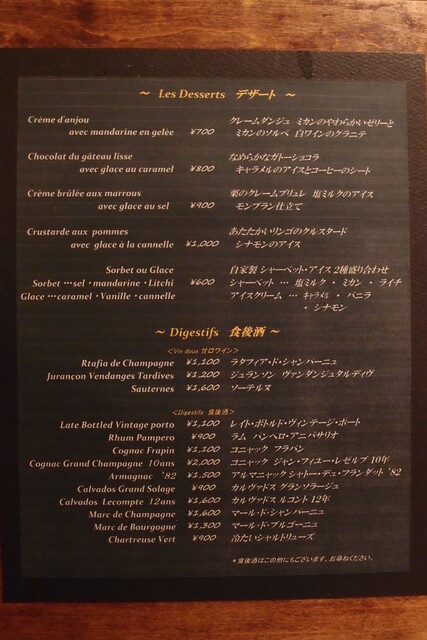 ～ Les Desserts デザート ～
Crème d'anjou クレームダンジュ ミカンのやわらかいゼリーと
avec mandarine en gelèe ¥700 ミカンのソルベ 白ワインのグラニテ
Chocolat du gâteau lisse なめらかなガトーショコラ
avec glace au caramel ¥800 キャラメルのアイスとコーヒーのシート
Crème brûlèe aux marrous 栗のクレームブリュレ 塩ミルクのアイス
avec glace au sel ¥900 モンブラン仕立て
Crustarde aux pommes あたたかいリンゴのクルスタード
avec glace à la cannelle ¥1,000 シナモンのアイス
Sorbet ou Glace 自家製 シャーベット・アイス 2種盛り合わせ
Sorbet …sel・mandarine・Litchi ¥600 シャーベット … 塩ミルク ・ ミカン ・ ライチ
Glace …caramel・Vanille・cannelle アイスクリーム … キャラメル ・ バニラ
・ シナモン
～ Digestifs 食後酒 ～
＜Vin doux 甘口ワイン＞
Rtafia de Champagne ¥1,100 ラタフィア・ド・シャンパーニュ
Jurançon Vendanges Tardives ¥1,200 ジュランソン ヴァンダンジュタルディヴ
Sauternes ¥1,600 ソーテルヌ
＜Digestifs 食後酒＞
Late Bottled Vintage porto ¥1,100 レイト・ボトルド・ヴィンテージ・ポート
Rhum Pampero ¥900 ラム パンペロ・アニバサリオ
Cognac Frapin ¥1,100 コニャック フラパン
Cognac Grand Champagne 10ans ¥2,000 コニャック ジャン・フィユー・レゼルブ 10年
Armagnac '82 ¥1,500 アルマニャック シャトー・デュ・フランダット '82
Calvados Grand Solage ¥900 カルヴァドス グランソラージュ
Calvados Lecompte 12ans ¥1,600 カルヴァドス ルコント 12年
Marc de Champagne ¥1,600 マール・ド・シャンパーニュ
Marc de Bourgogne ¥1,300 マール・ド・ブルゴーニュ
Chartreuse Vert ¥900 冷たいシャルトリューズ
*食後酒はこの他にもございます。お尋ねください。